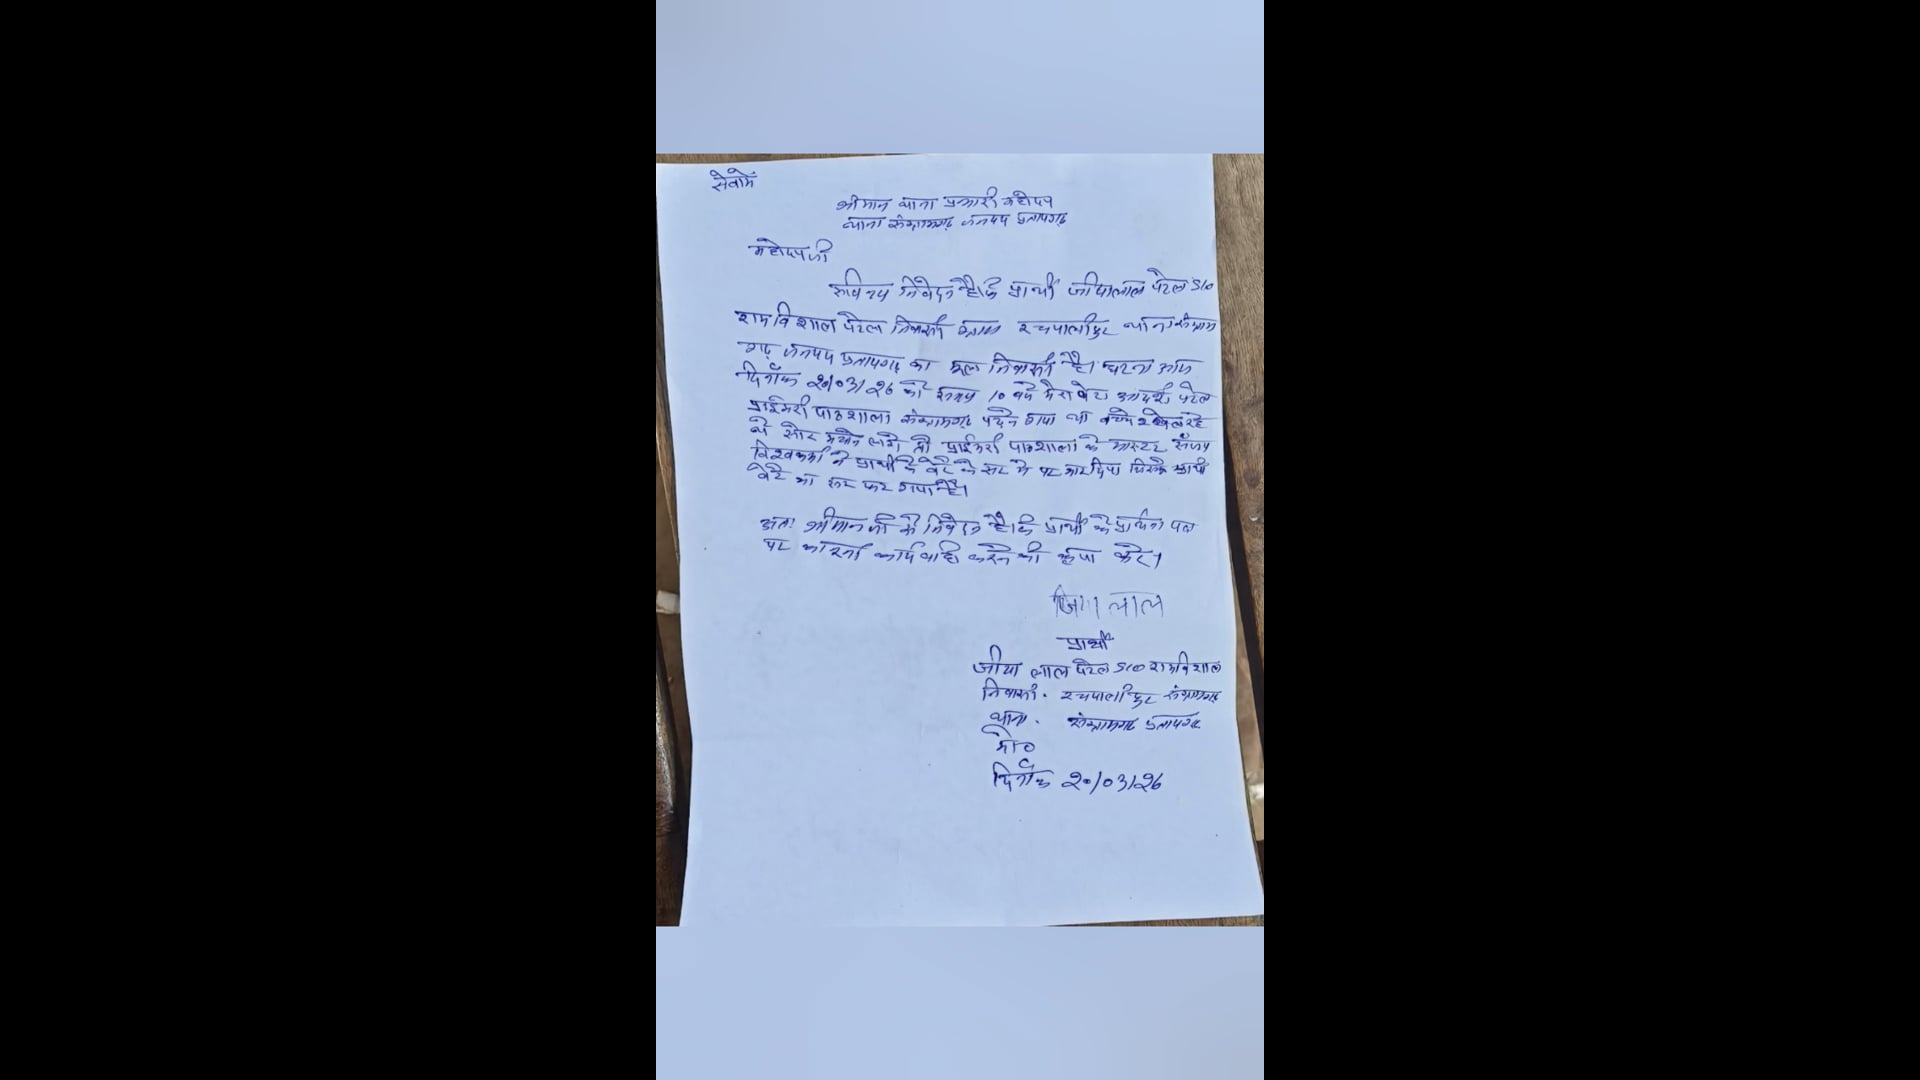 सेवामें
श्रीमान थाना प्रभारी महोदय
थाना संग्रामगढ़ जनपद प्रतापगढ़
महोदय जी
सविनय निवेदन है कि प्रार्थी जीयालाल पटेल S/O
रामविशाल पटेल निवासी ग्राम रचपालीपुर थाना संग्राम
गढ़ जनपद प्रतापगढ़ का मूल निवासी है। घटना आज
दिनाँक 20/03/26 को समय 10 बजे मेरा बेटा आदर्श पटेल
प्राईमरी पाठशाला संग्रामगढ़ पढ़ने गया था बच्चे खेल रहे
थे सोर मचाने लगे तो प्राईमरी पाठशाला के मास्टर संजय
विश्वकर्मा ने प्रार्थी के बेटे के सर मे मार दिया जिससे प्रार्थी
बेटे का सर फट गया है।
अतः श्रीमान जी से निवेदन है कि प्रार्थी के प्रार्थना पत्र
पर कार्यवाही करने की कृपा करे।
जिया लाल
प्रार्थी
जीया लाल पटेल S/O रामविशाल
निवासी. रचपालीपुर संग्रामगढ़
थाना. संग्रामगढ़ प्रतापगढ़
मो०
दिनाँक 20/03/26